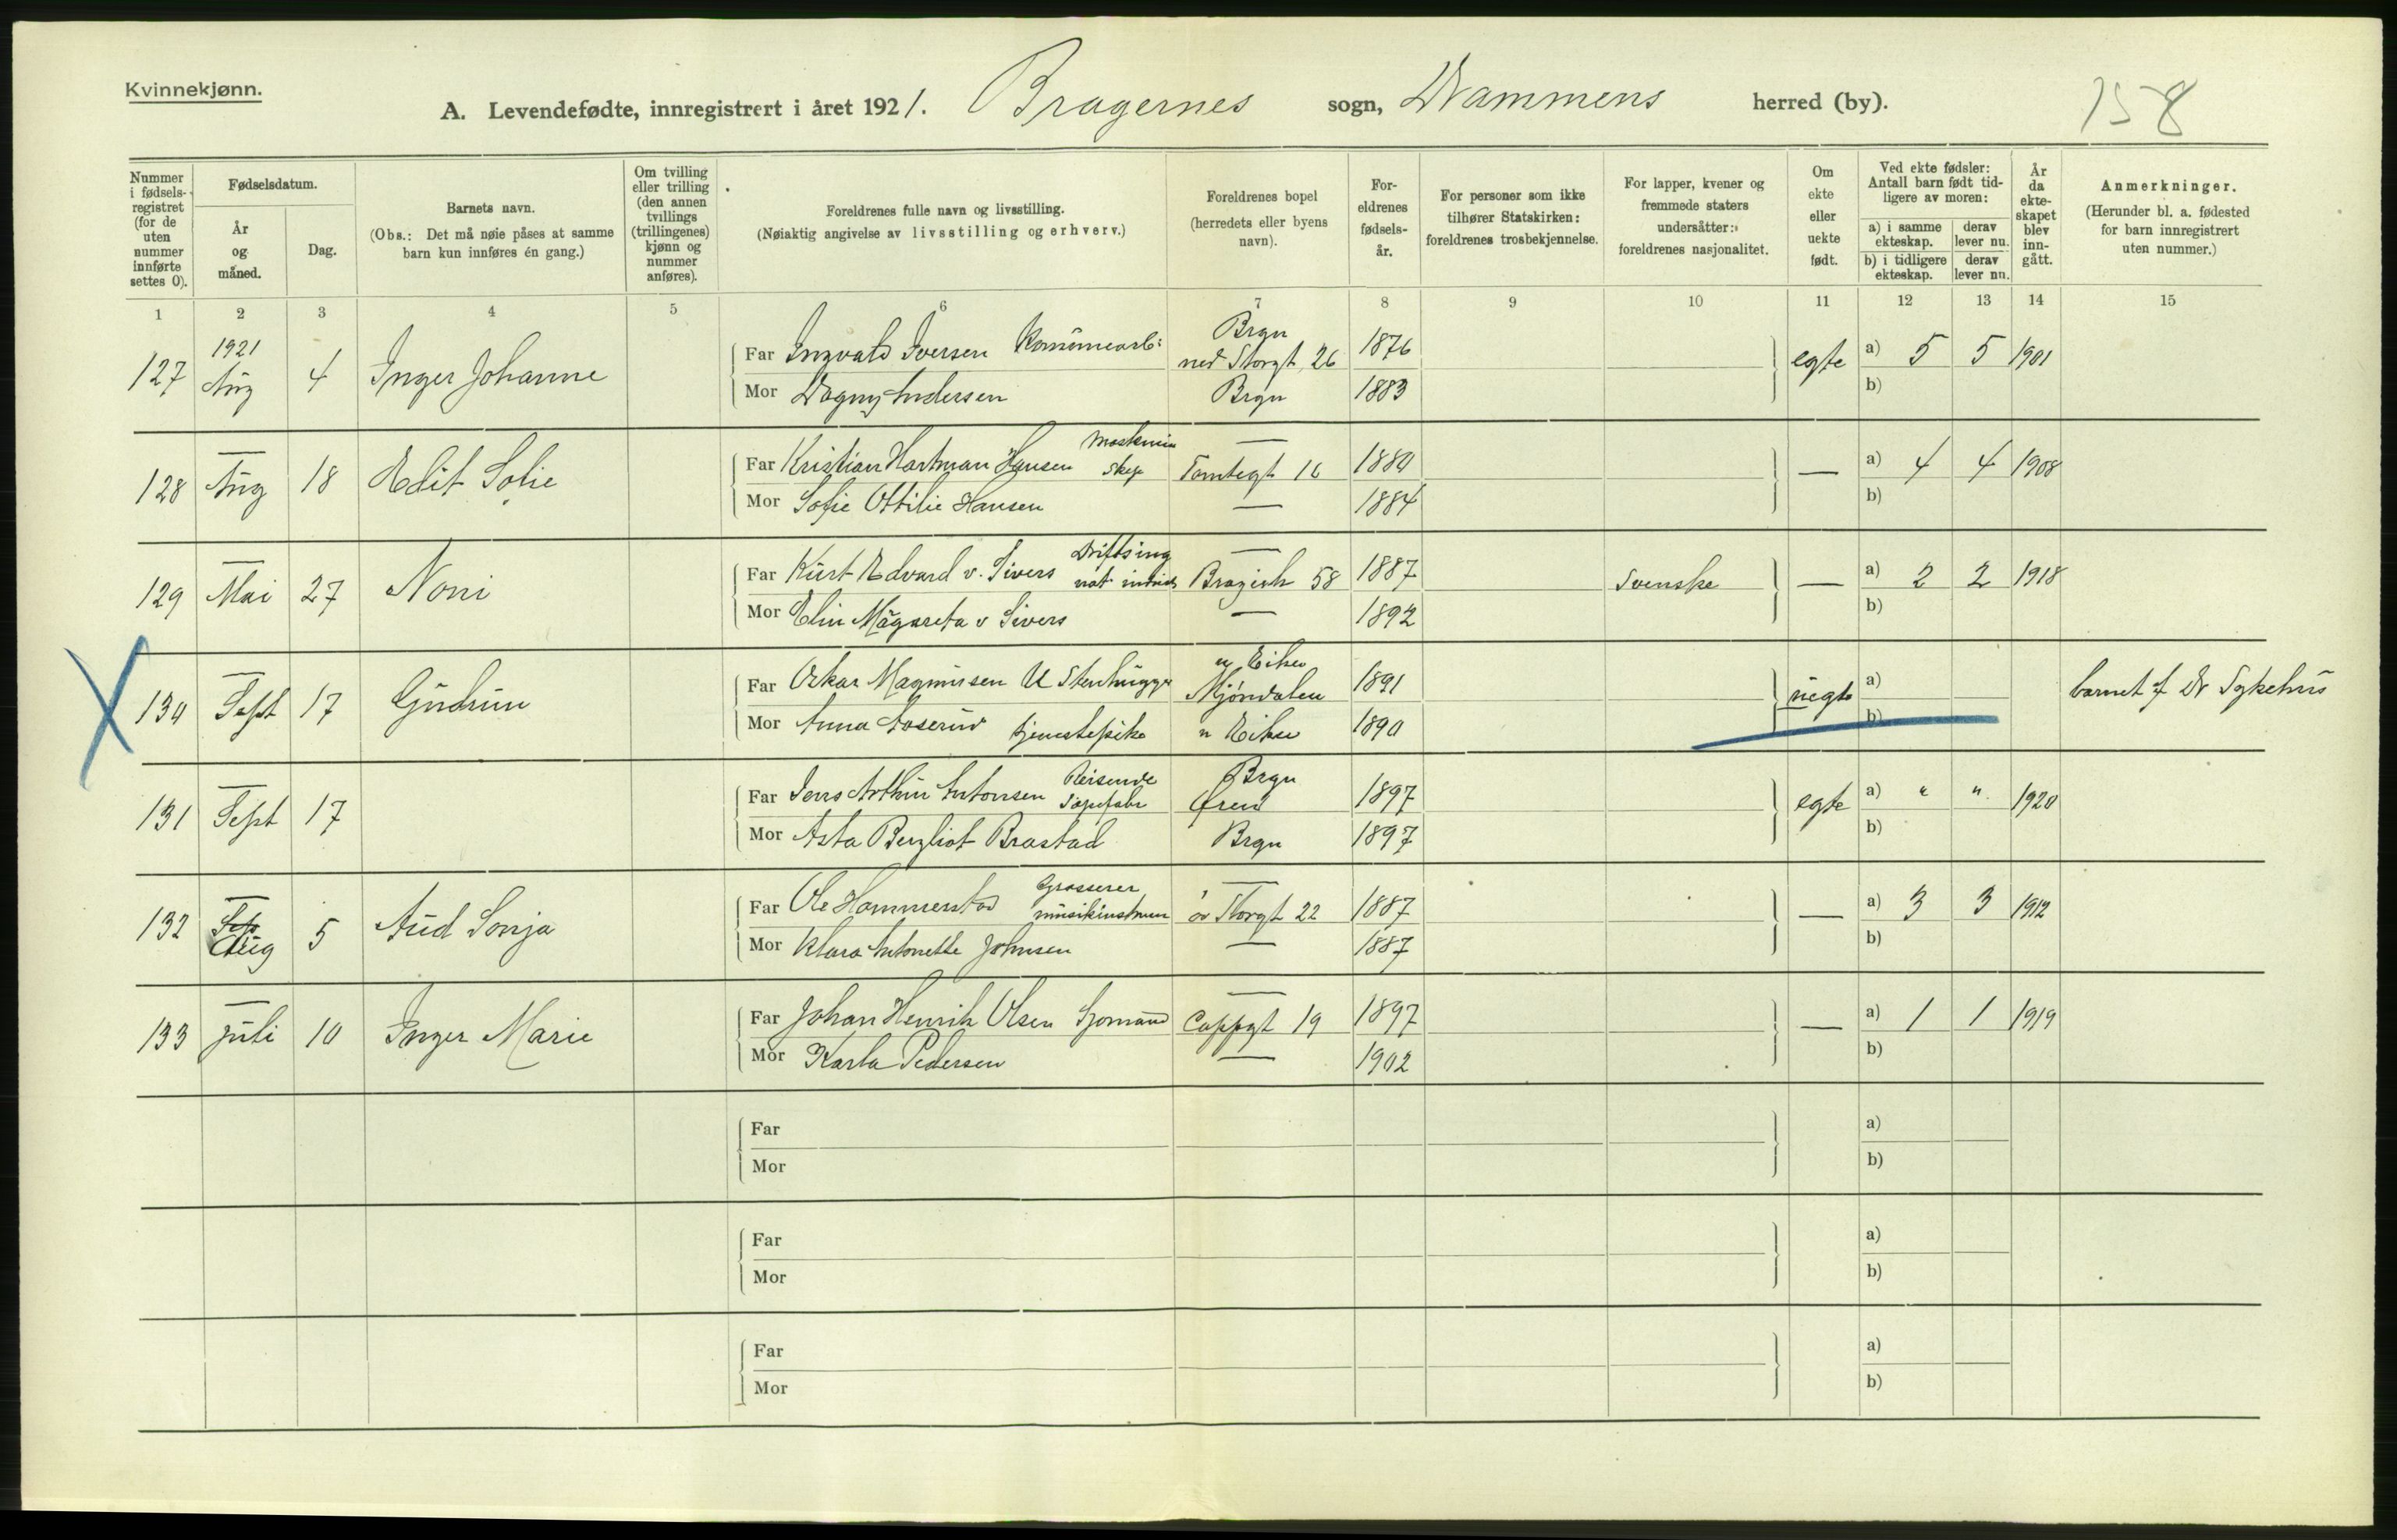 Kvinnekjønn.
A. Levendefødte, innregistrert i året 1921. Bragernes sogn, Drammens herred (by).
158
Nummer i fødselsregistret (for de uten nummer innførte settes 0).
Fødselsdatum.
År og måned.
Dag.
Barnets navn.
(Obs.: Det må nøie påses at samme barn kun innføres én gang.)
Om tvilling eller trilling (den annen tvillings (trillingenes) kjønn og nummer anføres).
Foreldrenes fulle navn og livsstilling.
(Nøiaktig angivelse av livsstilling og erhverv.)
Foreldrenes bopel (herredets eller byens navn).
Foreldrenes fødselsår.
For personer som ikke tilhører Statskirken: foreldrenes trosbekjennelse.
For lapper, kvener og fremmede staters undersåtter: foreldrenes nasjonalitet.
Om ekte eller uekte født.
Ved ekte fødsler: Antall barn født tidligere av moren:
a) i samme ekteskap. derav lever nu.
b) i tidligere ekteskap. derav lever nu.
År da ekteskapet blev inngått.
Anmerkninger.
(Herunder bl. a. fødested for barn innregistrert uten nummer.)
1 2 3 4 5 6 7 8 9 10 11 12 13 14 15
127 1921 Aug 4 Inger Johanne
Far Ingvald Iversen Kommunearb: Brgn ned Storgt 26 1876 egte a) 5 5 1901
Mor Dagny Andersen Brgn 1883 b)
128 — Aug 18 Edit Sofie
Far Kristian Hartman Hansen Maskin — Tomtegt 16 1880 — a) 4 4 1908
Mor Sofie Ottilie Hansen — 1884 b)
129 — Mai 27 Noni
Far Kurt Edvard v. Sivers Driftsing — 58 1887 Svenske — a) 2 2 1918
Mor Elin Mågareta v Sivers — 1892 b)
130 — Sept 17 Gudrun
Far Oskar Magnussen U Stenhugger n Eiker Mjøndalen 1891 uegte a) barnet f Dr Sykehus
Mor Anna Aaserud tjenestepike n Eiker 1890 b)
131 — Sept 17
Far Jens Arthur Antonsen Reisende Sæpefabr Brgn Øren 1897 egte a) " " 1920
Mor Asta Bergliot Brastad Brgn 1897 b)
132 — Aug 5 Aud Sonja
Far Ole Hammerstad Grosserer musikinstrum — øv Storgt 22 1887 — a) 3 3 1912
Mor Klara Antonette Johnsen — 1887 b)
133 — juli 10 Inger Marie
Far Johan Henrik Olsen Sjømand — Cappgt 19 1897 — a) 1 1 1919
Mor Karla Pedersen — 1902 b)
Far a)
Mor b)
Far a)
Mor b)
Far a)
Mor b)